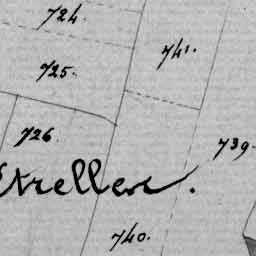 724.
741.
725.
726.
739.
740.